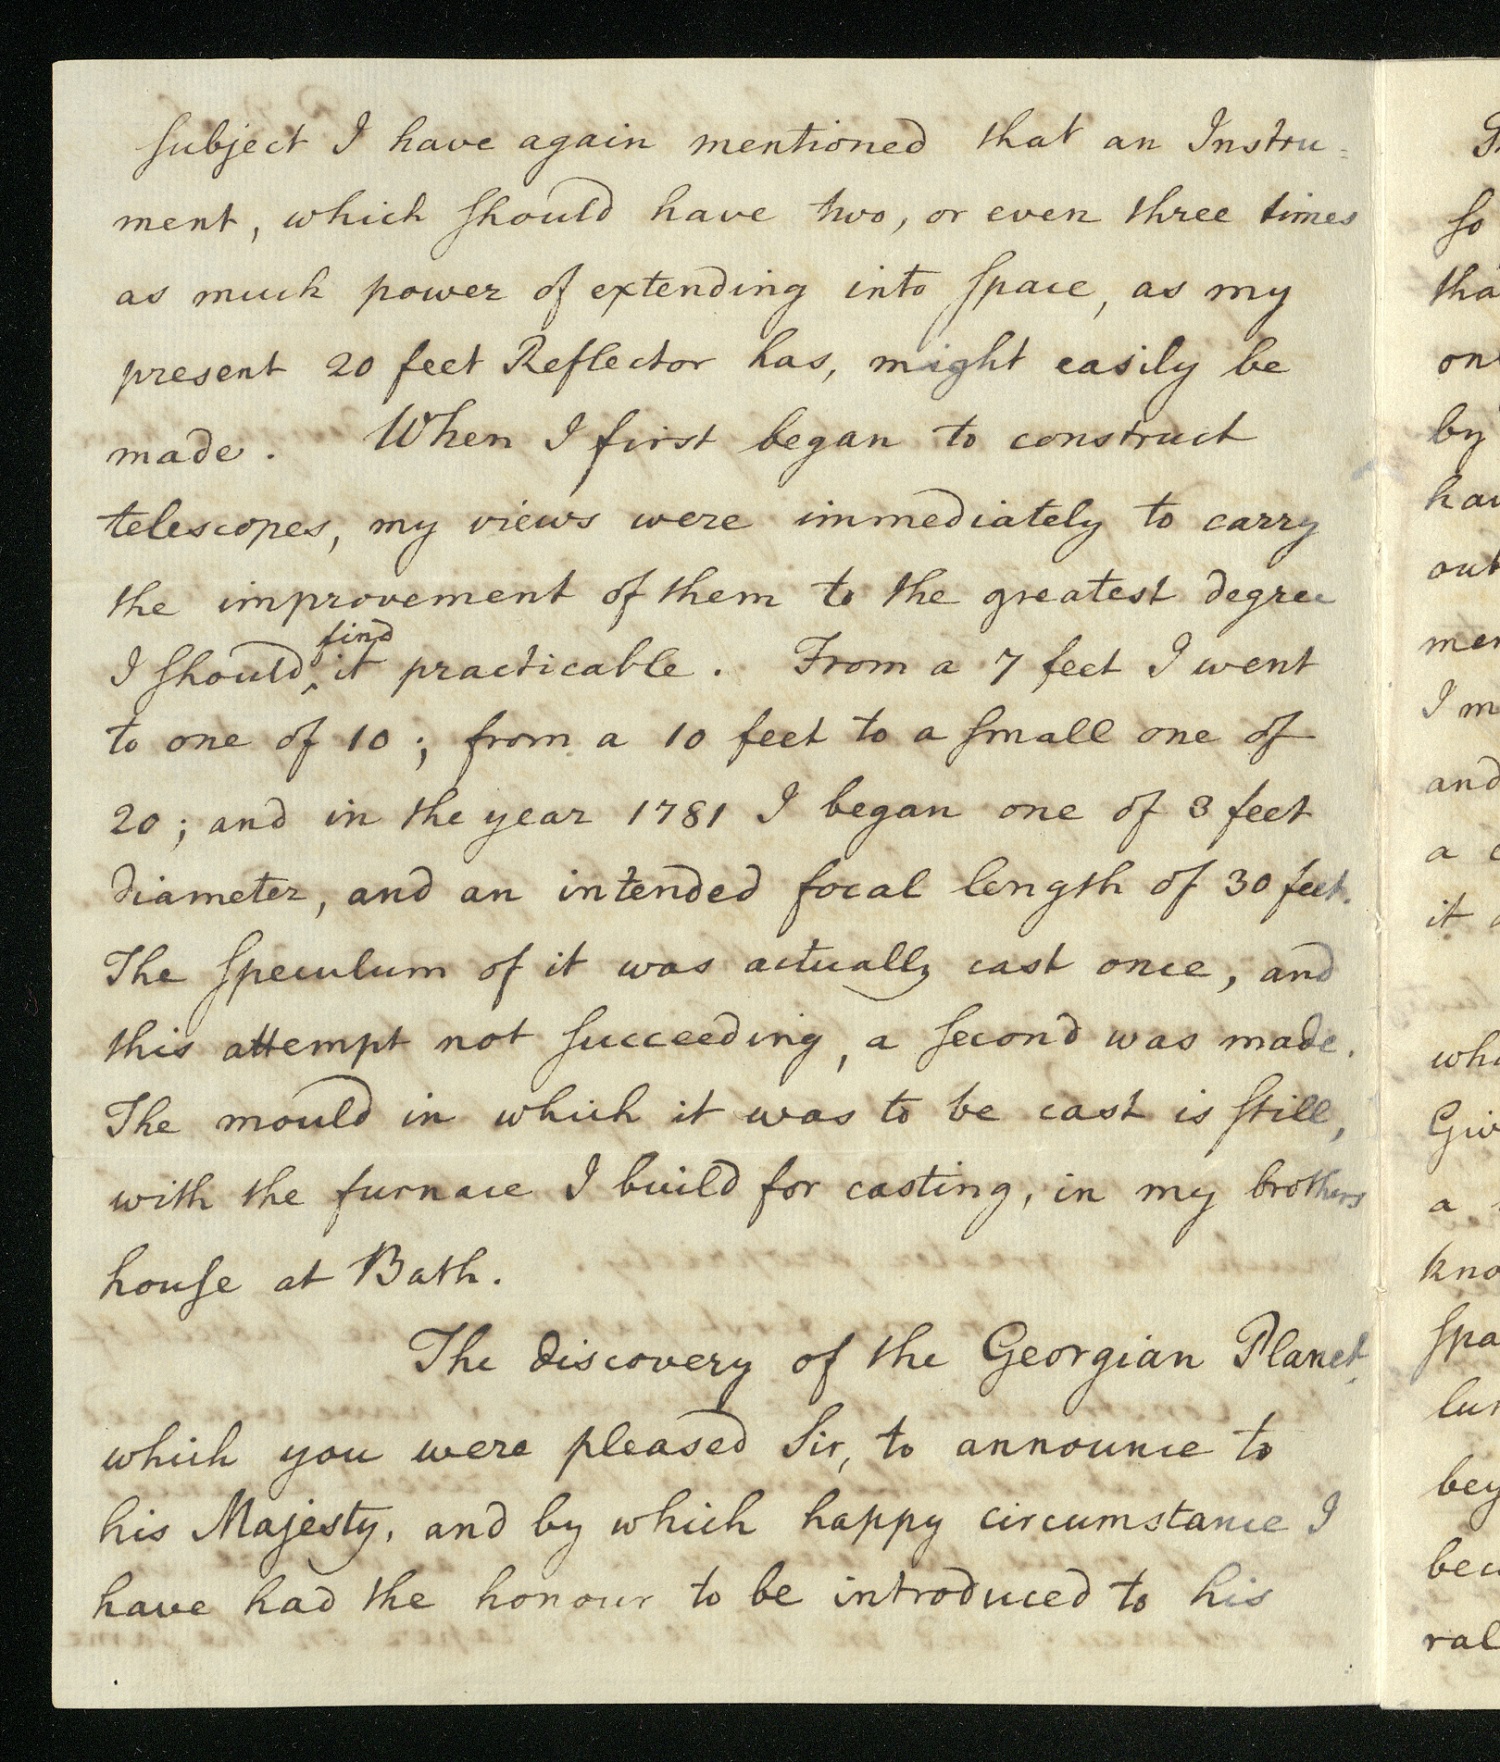 subject I have again mentioned that an Instru=
ment, which should have two, or even three times
as much power of extending into space, as my
present 20 feet Reflector has, might easily be
made. When I first began to construct
telescopes, my views were immediately to carry
the improvement of them to the greatest degree
I should find it practicable. From a 7 feet I went
to one of 10; from a 10 feet to a small one of
20; and in the year 1781 I began one of 3 feet
diameter, and an intended focal length of 30 feet.
The speculum of it was actually cast once, and
this attempt not succeeding, a second was made.
The mould in which it was to be cast is still,
with the furnace I build for casting, in my brothers
house at Bath.
The discovery of the Georgian Planet,
which you were pleased Sir, to announce to
his Majesty, and by which happy circumstance I
have had the honour to be introduced to his
so
by
out
and
a
it
a